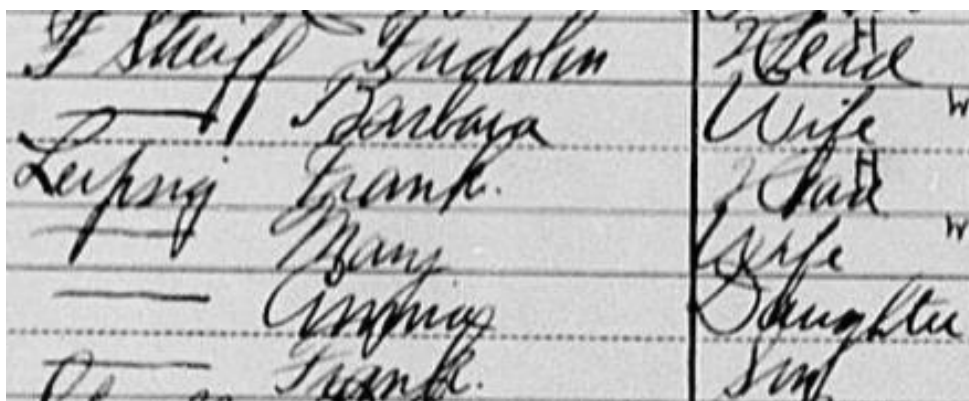 F Streiff Fridolin Head H
— Barbara Wife W
Leipsig Frank. Head H
— Mary Wife W
— Daughter
— Frank. Son